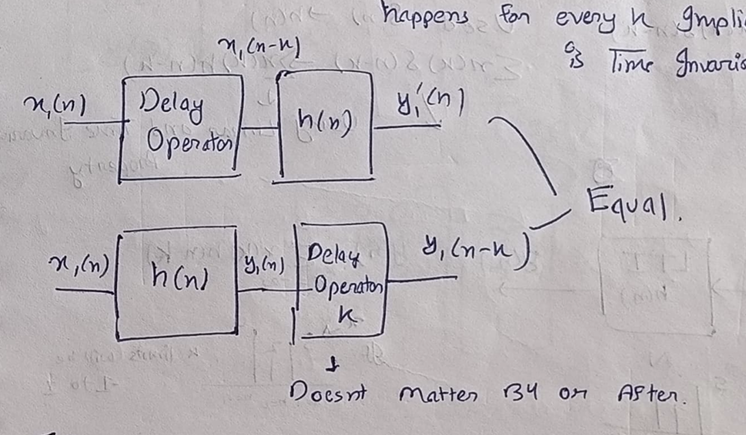 happens for every k Impli
is Time Invaria
x₁(n-k)
x₁(n)
Delay
Operator
h(n)
y₁'(n)
Equal.
x₁(n)
h(n)
y₁(n)
Delay
Operator
k
y₁(n-k)
Doesnt matter B4 or After.